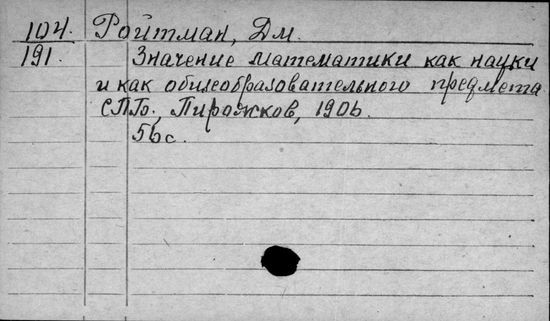 104. Ройтман, Дм.
191. Значение математики как науки
и как общеобразовательного предмета
СПб., Пирожков, 1906.
56 с.